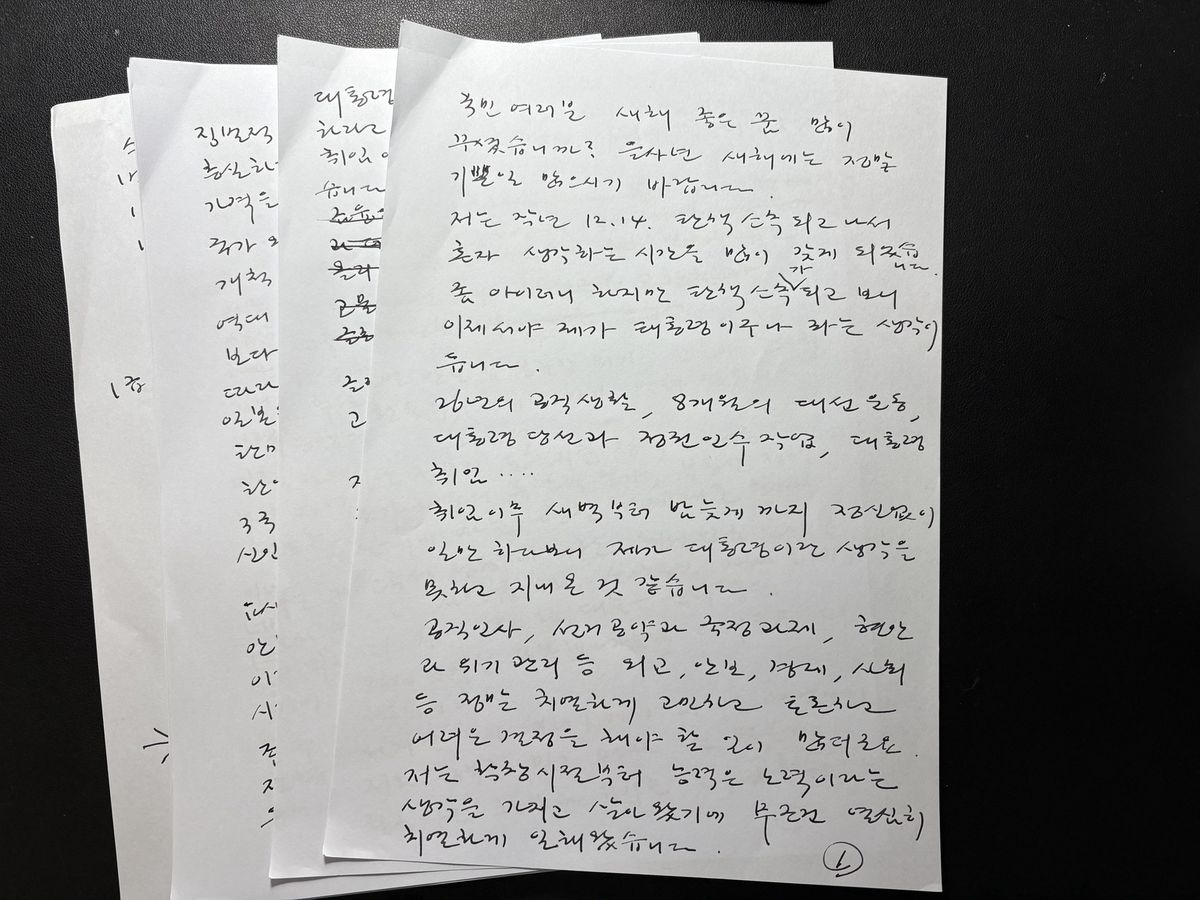 국민 여러분 새해 좋은 꿈 많이
꾸셨습니까? 을사년 새해에는 정말
기쁜일 많으시기 바랍니다.
저는 작년 12.14. 탄핵소추 되고 나서
혼자 생각하는 시간을 많이 갖게 되었습니다.
좀 아이러니 하지만 탄핵소추가 되고 보니
이제서야 제가 대통령이구나 라는 생각이
듭니다.
26년의 공직생활, 8개월의 대선 운동,
대통령 당선과 정권 인수 작업, 대통령
취임 ....
취임이후 새벽부터 밤늦게 까지 정신없이
일만 하다보니 제가 대통령이란 생각을
못하고 지내 온 것 같습니다.
공직인사, 선거공약과 국정과제, 현안
과 위기 관리 등 외교, 안보, 경제, 사회
등 정말 치열하게 고민하고 토론하고
어려운 결정을 해야 할 일이 많더군요.
저는 학창시절부터 능력은 노력이라는
생각을 가지고 살아 왔기에 무조건 열심히
치열하게 일해왔습니다.
1
대통령
하라고
취임
습니다
징벌적
충실하
가격을
국가
개척
역대
보다
따라
일본
한미
3국